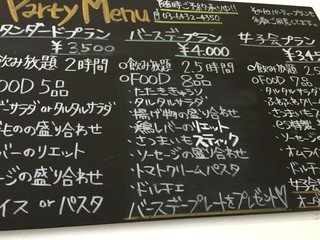 Party Menu
臨時ご予約承り中!!
03-6432-4350
その他パーティープランも
タンダードプラン
¥3500
飲み放題 2時間
FOOD 5品
サラダorタルタルサラダ
げものの盛り合わせ
バーのリエット
セージの盛り合わせ
イス or パスタ
バースデープラン
¥4,000
◎飲み放題 2.5時間
◎FOOD 8品
・たたききゅうり
・タルタルサラダ
・揚げ物の盛り合わせ
・鶏レバーのリエット
・さつまいもスティック
・ソーセージの盛り合わせ
・トマトクリームパスタ
・ドルチェ
バースデープレートをプレゼント♡
女子会プラン
¥345
◎飲み放題 2.5
◎FOOD
・さつまいも
・ソーセー
・オムライ
・ドルチェ